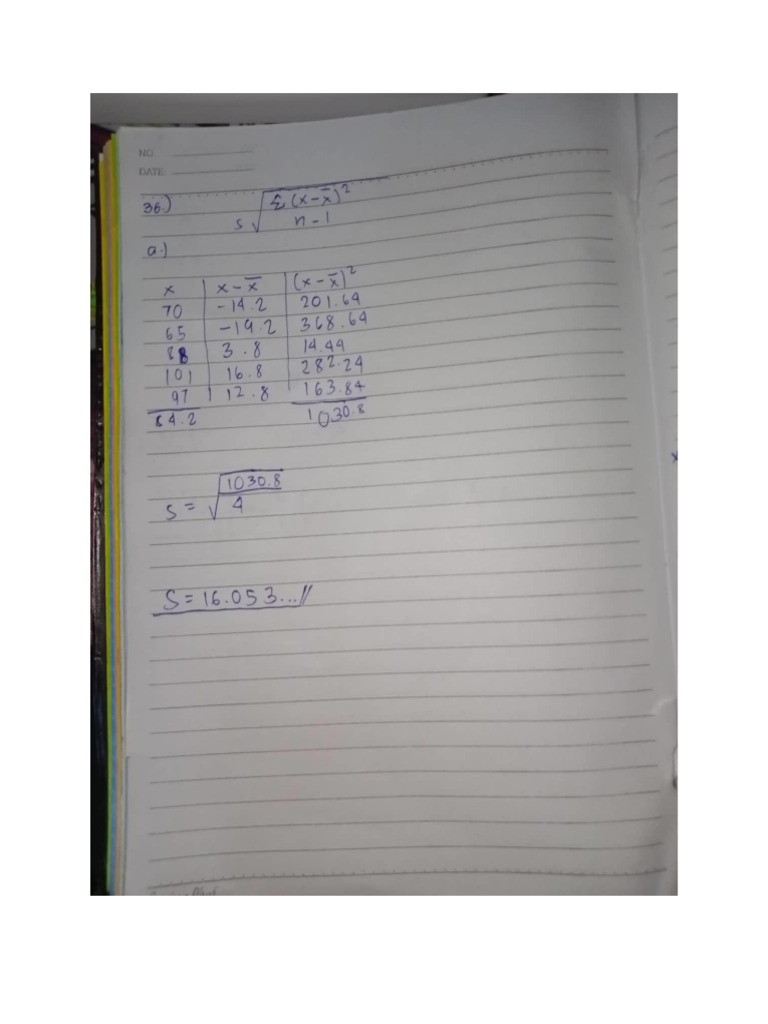 NO.
DATE:
36.)
s √ Σ (x-x̄)²
n-1
a.)
x x-x̄ (x-x̄)²
70 -14.2 201.64
65 -19.2 368.64
88 3.8 14.44
101 16.8 282.24
97 12.8 163.84
84.2 1030.8
s = √ 1030.8
4
S = 16.053...//